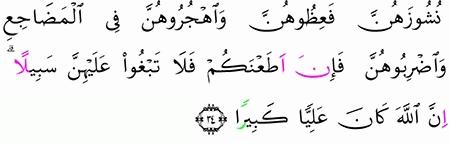 نُشُوزَهُنَّ فَعِظُوهُنَّ وَٱهۡجُرُوهُنَّ فِى ٱلۡمَضَاجِعِ
وَٱضۡرِبُوهُنَّ‌ فَإِنۡ اَطَعۡنَكُمۡ فَلَا تَبۡغُواْ عَلَيۡهِنَّ سَبِيلاً‌ۗ
اِنَّ ٱللَّهَ كَانَ عَلِيًّا كَبِيرًا ﴿٣٤﴾